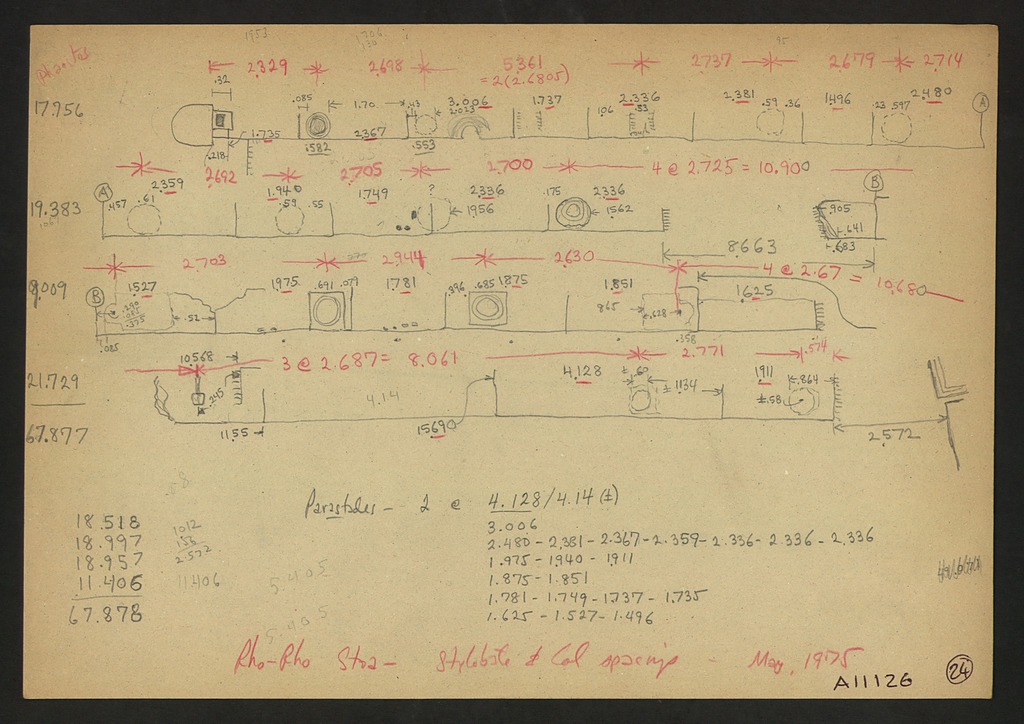 1953
2.329 2.698 5.361 2.737 2.679 2.714
= 2(2.6805)
.32
17.756 .085 1.70 .43 3.006 1.737 2.336 2.381 .59 .36 1.496 .23 .597 2.480 A
2.023 1.06 .53
1.735 2.367
.218 1.582 .553
2.692 2.705 2.700 4 @ 2.725 = 10.900
A 2.359 1.940 1.749 ? 2.336 .175 2.336 B
19.383 .457 .61 .59 .55 1.956 1.562 .905
.641
.683
8.663
2.703 2.944 2.630 4 @ 2.67 = 10.680
B 1.527 1.975 .691 .079 1.781 .396 .685 1.875 1.851 1.625
.52 .865 .628
.085 .358
10.568 3 @ 2.687 = 8.061 2.771 .574
21.729 4.128 ±.60 1.911 .864
.245 4.14 ±1.134 ±.58
67.877 11.55 15.690 2.572
Parastades - 2 @ 4.128/4.14 (±)
18.518 1012 3.006
18.997 2.480 - 2.381 - 2.367 - 2.359 - 2.336 - 2.336 - 2.336
18.957 2.572 1.975 - 1.940 - 1.911
11.406 11.406 5.405 1.875 - 1.851
1.781 - 1.749 - 1.737 - 1.735
67.878 5.405 1.625 - 1.527 - 1.496
Rho-Rho Stoa - Stylobate & Col spacings - May, 1975
A11126 24